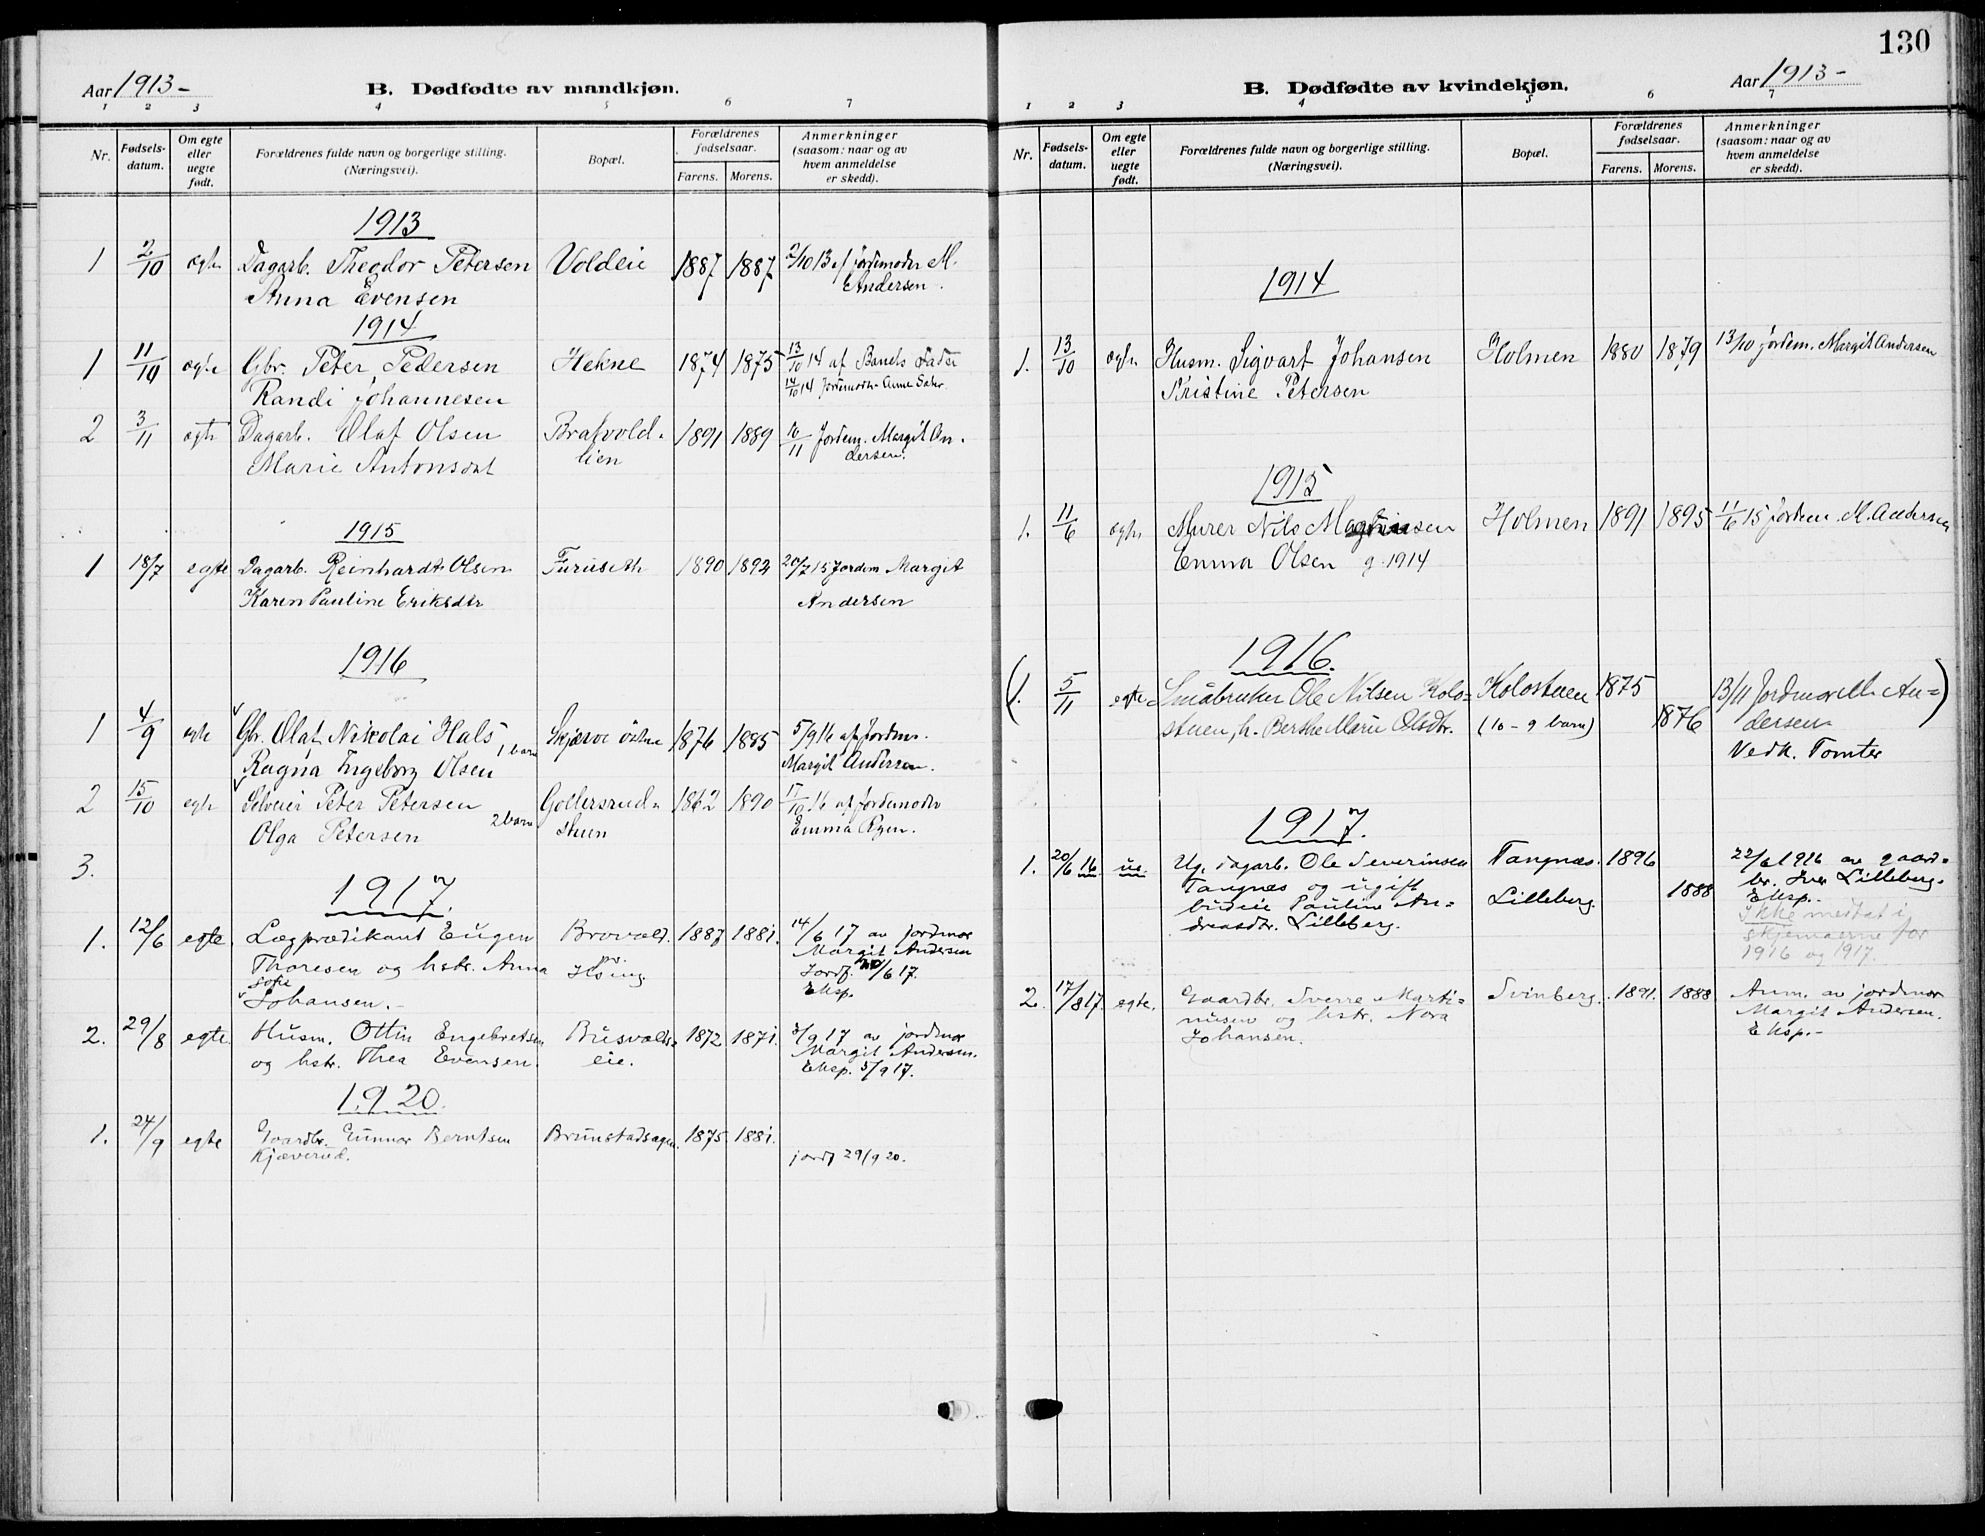 Aar 1913-
B. Dødfødte av mandkjøn.
1 2 3 4 5 6 7
Nr.
Fødsels-
datum.
Om egte
eller
uegte
født.
Forældrenes fulde navn og borgerlige stilling.
(Næringsvei).
Bopæl.
Forældrenes
fødselsaar.
Farens. Morens.
Anmerkninger
(saasom: naar og av
hvem anmeldelse
er skedd).
1913
1 2/10 egte Dagarb. Theodor Petersen Voldeie 1887 1887 2/10 13 af jordemoder M.
Anna Evensen Andersen.
1914
1 11/10 egte Gbr. Peter Pedersen Hekne 1874 1875 13/10 14 af Barnets Fader
Randi Johannesen 14/10 14 Jordemoder Anne
2 3/11 egte Dagarb. Olaf Olsen Bratvold- 1891 1889 10/11 Jordem. Margit An-
Marie Antonsdat lien dersen.
1915
1 18/7 egte Dagarb. Reinhardt Olsen Furuseth 1890 1892 20/7 15 Jordem Margit
Karen Pauline Eriksdtr Andersen
1916
1 4/9 egte Gbr. Olaf Nikolai Hals 1 barn Skjærve østre 1876 1885 5/9 16 af jordem.
Ragna Ingeborg Olsen Margit Andersen.
2 15/10 egte Selveier Peter Petersen Gollersrud- 1862 1890 17/10 16 af jordemoder
Olga Petersen 2 barn stuen Emma Ryen.
3.
1917.
1. 12/6 egte. Lægprædikant Eugen Brovold. 1887 1881. 14/6 17 av jordmor
Thoresen og hstr. Anna Margit Andersen
Sofie Jordf. 20/6 17.
Johansen. - Eksp.
2. 29/8 egte. Husm. Ottin Engebretsen Busvolds- 1872 1871. 3/9 17 av jordmor
og hstr. Thea Evensen. eie. Margit Andersen.
Eksp. 5/9 17.
1920.
1. 24/9 egte Gaardbr. Gunnar Berntsen Brunstadsagen. 1875 1881.
Kjæverud. jordf 29/9 20.
130
B. Dødfødte av kvindekjøn.
Aar 1913-
1 2 3 4 5 6 7
Nr.
Fødsels-
datum.
Om egte
eller
uegte
født.
Forældrenes fulde navn og borgerlige stilling.
(Næringsvei).
Bopæl.
Forældrenes
fødselsaar.
Farens. Morens.
Anmerkninger
(saasom: naar og av
hvem anmeldelse
er skedd).
1914
1. 13/10 egte Husm. Sigvart Johansen Holmen 1880 1879 13/10 jordem. Margit Andersen
Kristine Petersen
1915
1. 11/6 egte Murer Nils Holmen 1891 1895 11/6 15 Jordem. M. Andersen
Emma Olsen g. 1914
1916.
(1. 5/11 egte Småbruker Ole Nilsen Kolo- Kolostuen 1875 13/11 Jordmor M. An-)
stuen, h. Berthe Marie Olsdtr. (10 - 9 barn) 1876 dersen
Vedk. Tomter
1917.
1. 20/6 16 ue. Ug. dagarb. Ole Severinsen Tangnæs. 1896 22/6 1916 av gaard-
Tangnes og ugift Lilleberg. 1888 br. Iver Lilleberg.
budeie Pauline An- Eksp.-
dreasdtr. Lilleberg. Ikke medtat i
skjemaerne for
1916 og 1917.
2. 17/8 17. egte. Gaardbr. Sverre Marti- Svinberg. 1891. 1888 Anm. av jordmor
nusen og hstr. Nora Margit Andersen.
Johansen. Eksp.-